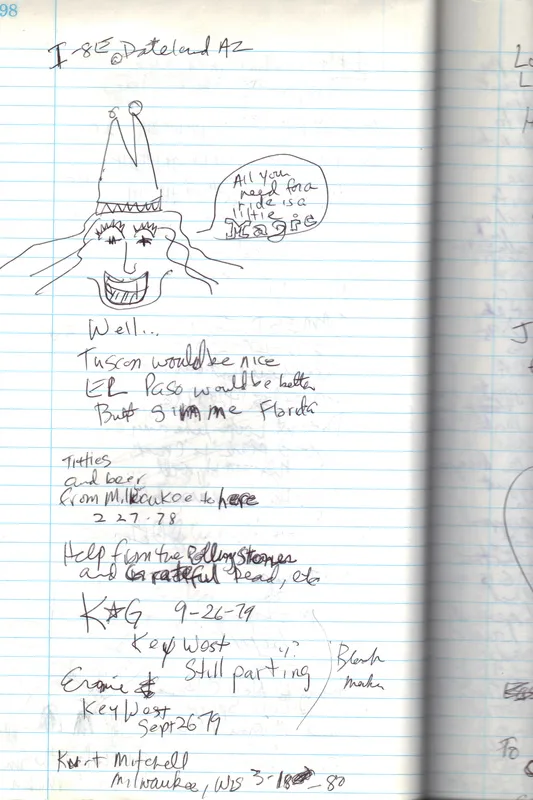 98
I-8E @ Dateland AZ
All you
need for a
ride is a
little
Magic
Well...
Tuscon would be nice
EL Paso would be better
But gimme Florida
Titties
and beer
from Milwaukee to here
2 27-78
Help from the Rolling Stones
and Grateful Dead, etc
K☆G 9-26-79
Key West
Still parting
Ernie
Key West
Sept 26 79
Kurt Mitchell
Milwaukee, Wis 3-18-80
L
L
H
J
To